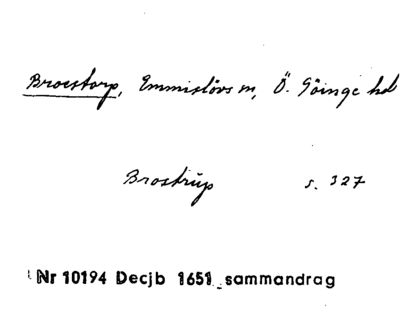 Broestorp, Emmislövs sn, Ö. Göinge hd
Brostrup s. 327
Nr 10194 Decjb 1651 sammandrag